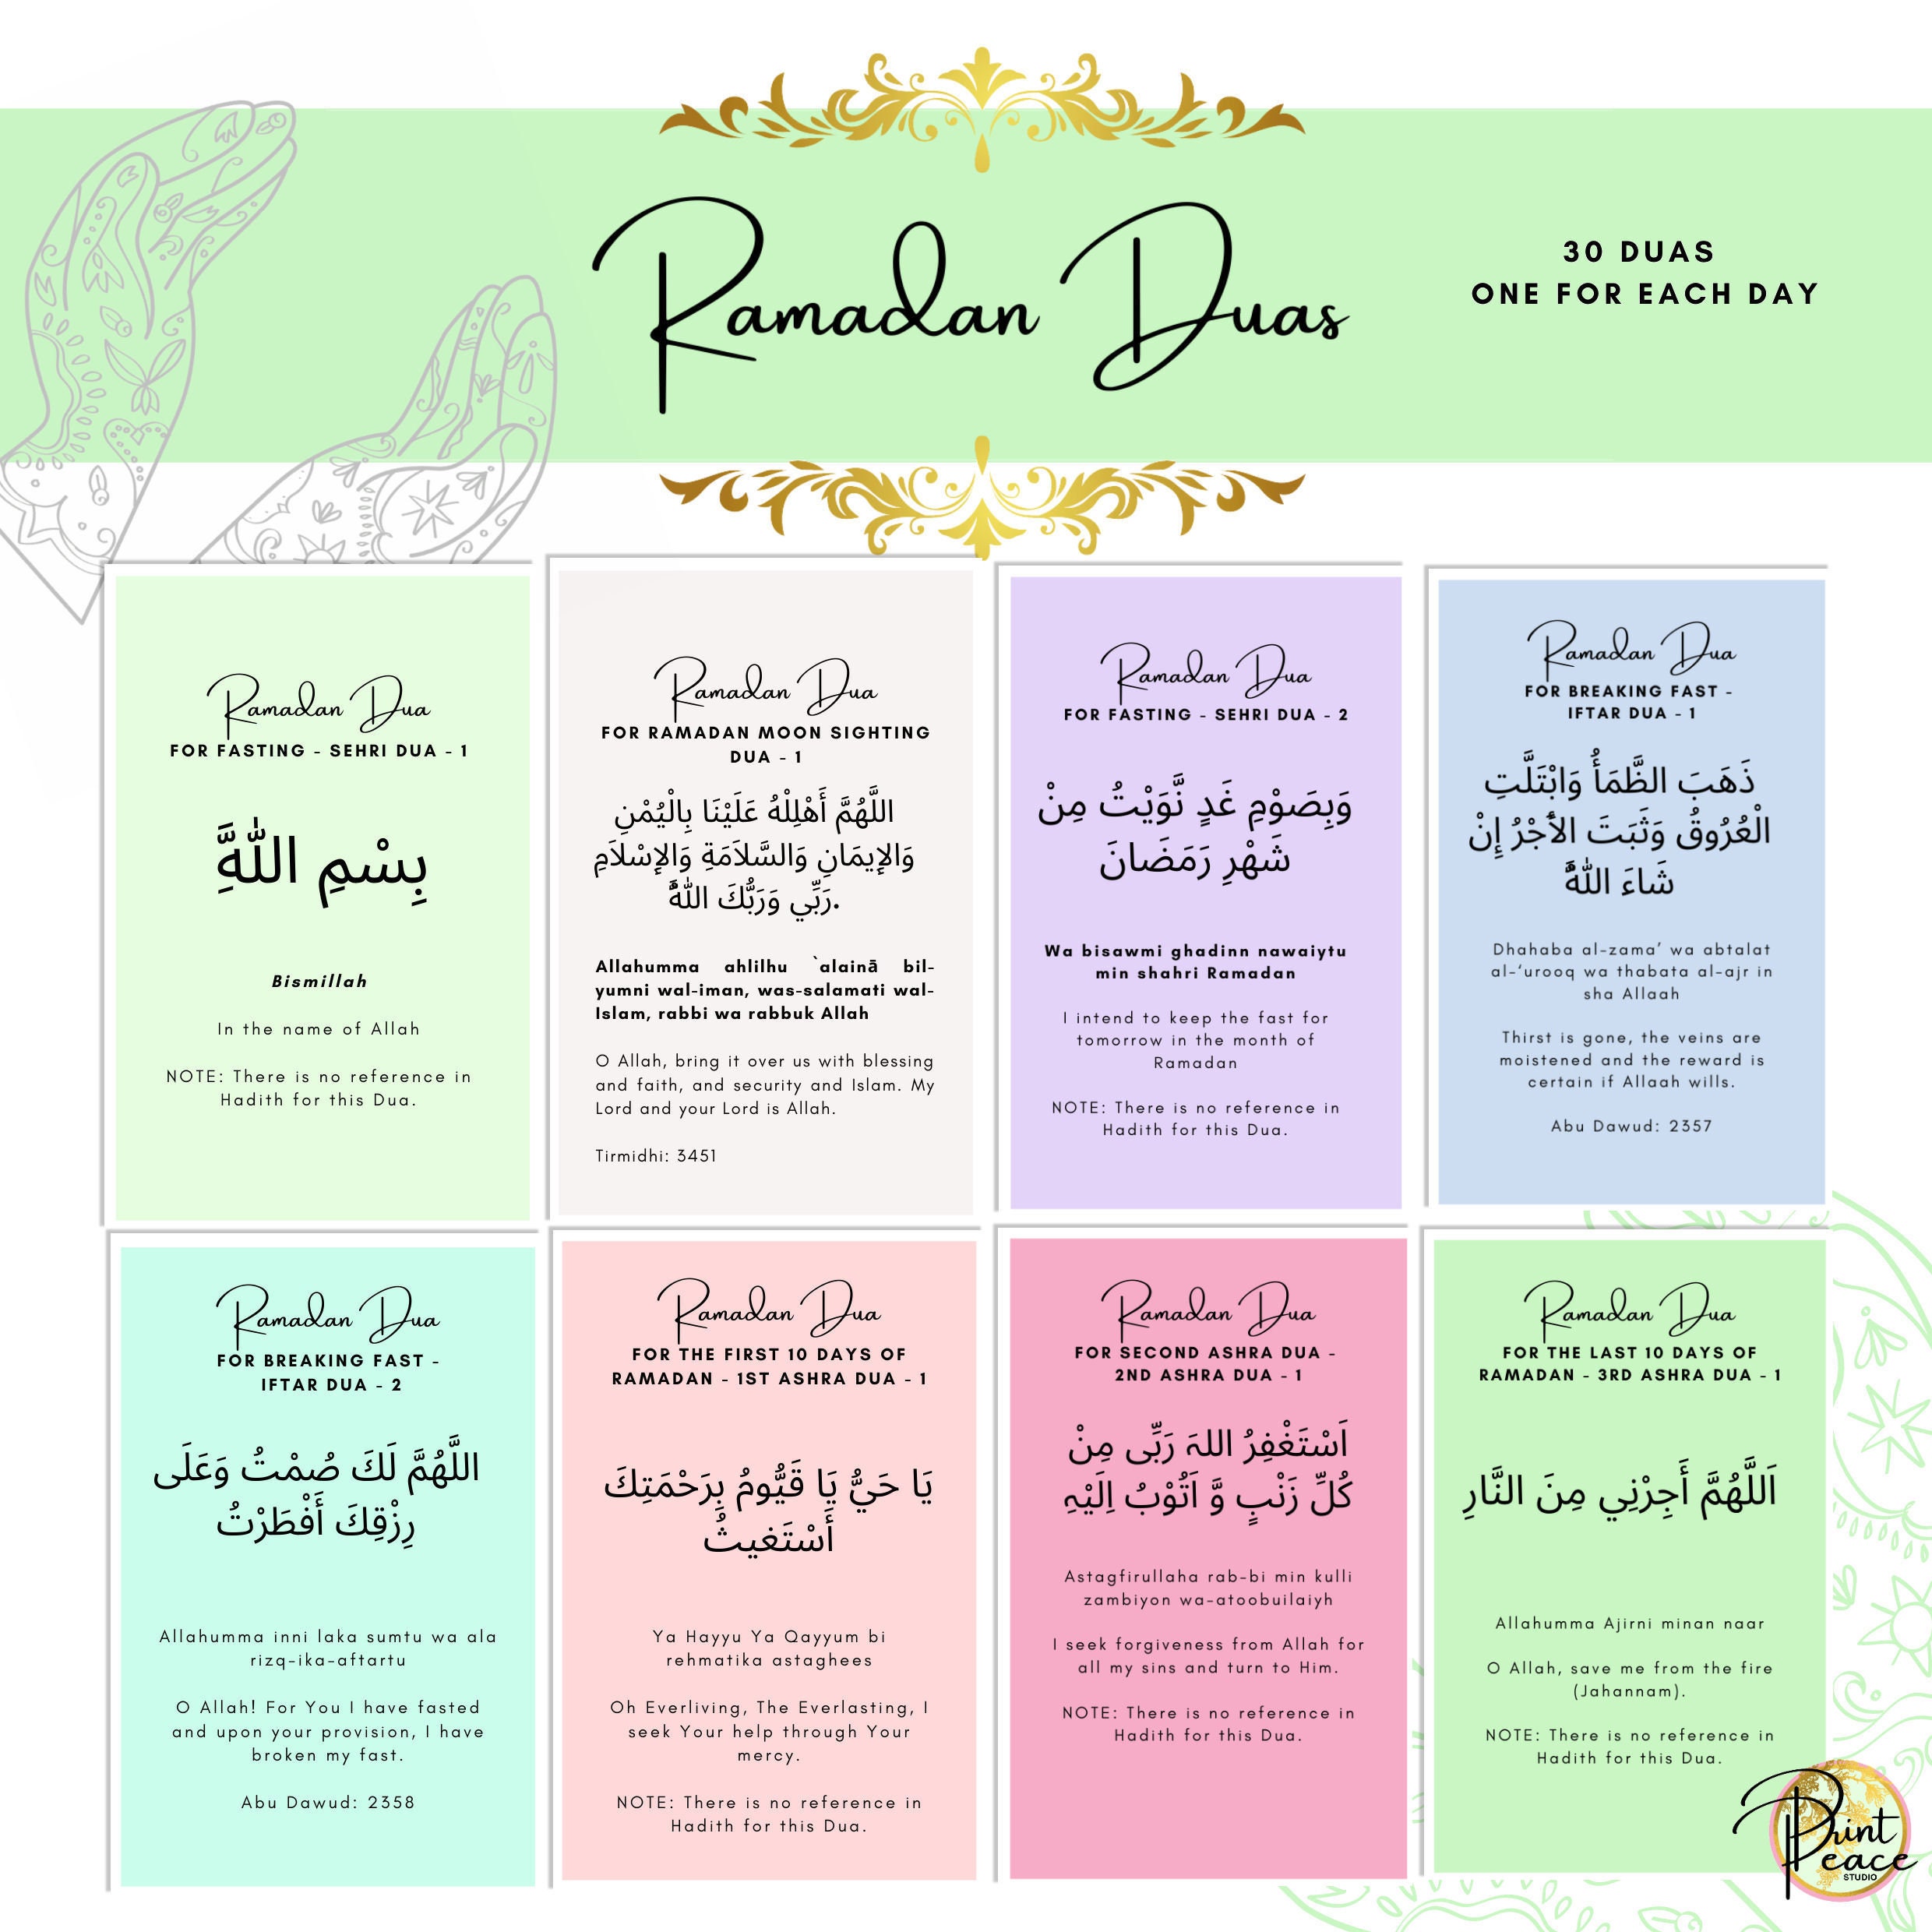 Ramadan Duas
30 DUAS
ONE FOR EACH DAY
Ramadan Dua
FOR FASTING - SEHRI DUA - 1
بِسْمِ اللهَِّ
Bismillah
In the name of Allah
NOTE: There is no reference in
Hadith for this Dua.
Ramadan Dua
FOR RAMADAN MOON SIGHTING
DUA - 1
اللَّهُمَّ أَهْلِلْهُ عَلَيْنَا بِالْيُمْنِ
وَالإِيمَانِ وَالسَّلاَمَةِ وَالإِسْلاَمِ
رَبِّي وَرَبُّكَ اللهَُّ.
Allahumma ahlilhu `alainā bil-
yumni wal-iman, was-salamati wal-
Islam, rabbi wa rabbuk Allah
O Allah, bring it over us with blessing
and faith, and security and Islam. My
Lord and your Lord is Allah.
Tirmidhi: 3451
Ramadan Dua
FOR FASTING - SEHRI DUA - 2
وَبِصَوْمِ غَدٍ نَّوَيْتُ مِنْ
شَهْرِ رَمَضَانَ
Wa bisawmi ghadinn nawaiytu
min shahri Ramadan
I intend to keep the fast for
tomorrow in the month of
Ramadan
NOTE: There is no reference in
Hadith for this Dua.
Ramadan Dua
FOR BREAKING FAST -
IFTAR DUA - 1
ذَهَبَ الظَّمَأُ وَابْتَلَّتِ
الْعُرُوقُ وَثَبَتَ الأَجْرُ إِنْ
شَاءَ اللهَُّ
Dhahaba al-zama’ wa abtalat
al-‘urooq wa thabata al-ajr in
sha Allaah
Thirst is gone, the veins are
moistened and the reward is
certain if Allaah wills.
Abu Dawud: 2357
Ramadan Dua
FOR BREAKING FAST -
IFTAR DUA - 2
اللَّهُمَّ لَكَ صُمْتُ وَعَلَى
رِزْقِكَ أَفْطَرْتُ
Allahumma inni laka sumtu wa ala
rizq-ika-aftartu
O Allah! For You I have fasted
and upon your provision, I have
broken my fast.
Abu Dawud: 2358
Ramadan Dua
FOR THE FIRST 10 DAYS OF
RAMADAN - 1ST ASHRA DUA - 1
يَا حَيُّ يَا قَيُّومُ بِرَحْمَتِكَ
أَسْتَغيثُ
Ya Hayyu Ya Qayyum bi
rehmatika astaghees
Oh Everliving, The Everlasting, I
seek Your help through Your
mercy.
NOTE: There is no reference in
Hadith for this Dua.
Ramadan Dua
FOR SECOND ASHRA DUA -
2ND ASHRA DUA - 1
اَسْتَغْفِرُ اللہَ رَبِّی مِنْ
کُلِّ زَنْبٍ وَّ اَتُوْبُ اِلَیْہِ
Astagfirullaha rab-bi min kulli
zambiyon wa-atoobuilaiyh
I seek forgiveness from Allah for
all my sins and turn to Him.
NOTE: There is no reference in
Hadith for this Dua.
Ramadan Dua
FOR THE LAST 10 DAYS OF
RAMADAN - 3RD ASHRA DUA - 1
اَللَّهُمَّ أَجِرْنِي مِنَ النَّارِ
Allahumma Ajirni minan naar
O Allah, save me from the fire
(Jahannam).
NOTE: There is no reference in
Hadith for this Dua.
Print
Peace
STUDIO